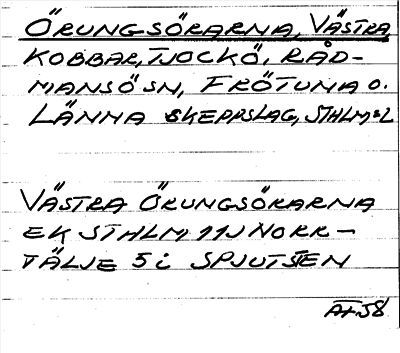 ÖRUNGSÖRARNA, VÄSTRA
KOBBAR, TJOCKÖ, RÅD-
MANSÖ SN, FRÖTUNA O.
LÄNNA SKEPPSLAG, STHLMS L
VÄSTRA ÖRUNGSÖRARNA
EK STHLM 11J NORR-
TÄLJE 5 i SPJUTSTEN